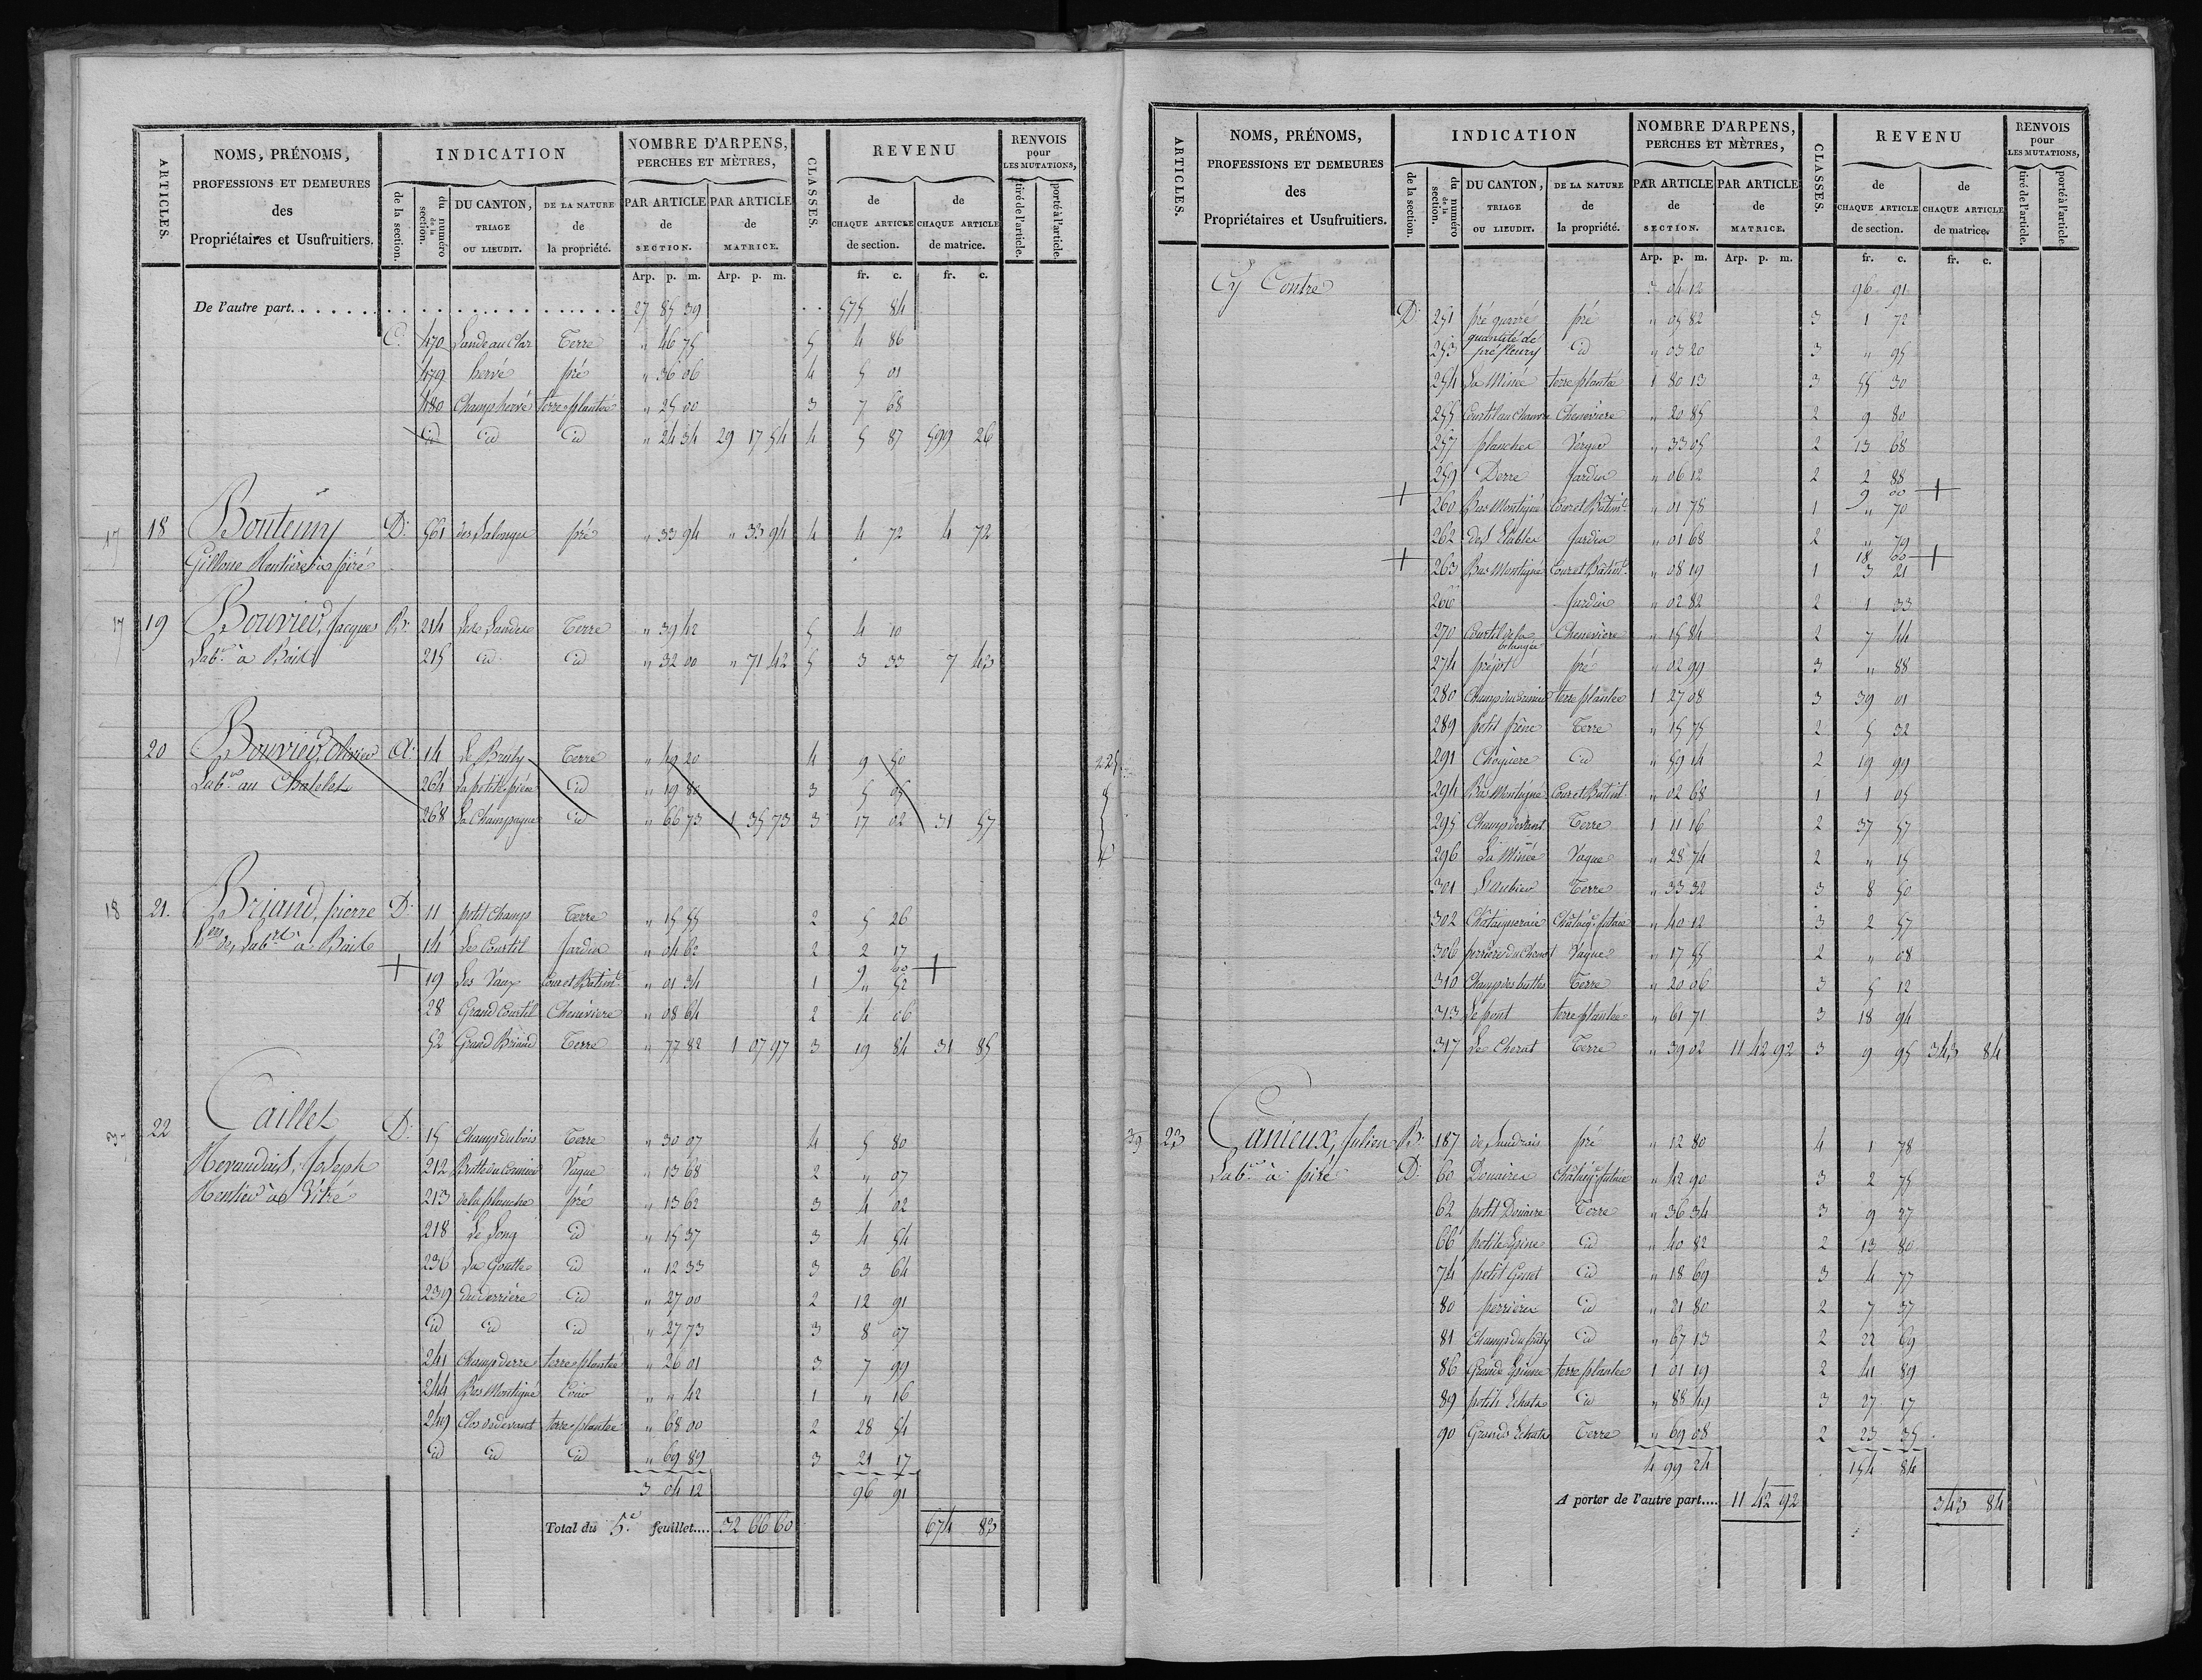 ARTICLES.
NOMS, PRÉNOMS,
PROFESSIONS ET DEMEURES
des
Propriétaires et Usufruitiers.
INDICATION
de la section.
du numéro de la section.
DU CANTON,
TRIAGE
OU LIEUDIT.
DE LA NATURE
de
la propriété.
NOMBRE D'ARPENS,
PERCHES ET MÈTRES,
PAR ARTICLE
de
SECTION.
PAR ARTICLE
de
MATRICE.
CLASSES.
REVENU
de
CHAQUE ARTICLE
de section.
de
CHAQUE ARTICLE
de matrice.
RENVOIS
pour
LES MUTATIONS,
tiré de l'article.
porté à l'article.
Arp. p. m. Arp. p. m. fr. c. fr. c.
De l'autre part. 27 85 39 575 84
C. 470 Lande au Clar Terre " 46 75 5 4 86
479 hervé pré " 36 06 4 5 01
480 Champ hervé terre plantée " 25 00 3 7 68
id id id " 24 34 29 17 54 4 5 87 599 26
17 18 Boutemy D. 561 des Salonges pré " 33 94 " 33 94 4 4 72 4 72
Gillone Rentière à piré
17 19 Bouvier, Jacques B. 214 Les Landes Terre " 39 42 5 4 10
Lab.r à Bais 215 id id " 32 00 " 71 42 5 3 33 7 43
20 Bouvier, olivier A. 14 Le Bruly Terre " 49 20 4 9 50 225
Lab.r au Chatelet 264 La petite pièce id " 19 80 3 5 05
268 La Champagne id " 66 73 1 35 73 3 17 02 31 57
18 21. Briand, pierre D. 11 petit Champ Terre " 15 55 2 5 26
Lab.r à Bais 14 Le Courtil Jardin " 04 62 2 2 17
+ 19 Les Vaux Cour et Batim.t " 01 34 1 9 00 +
" 52
28 Grand Courtil Cheneviere " 08 64 2 4 06
52 Grand Briand Terre " 77 82 1 07 97 3 19 84 31 85
22 Caillet D. 15 Champ du bois Terre " 30 07 4 5 80
Mevaudais, Joseph 212 Butte du Cormier Vague " 13 68 2 " 07
Rentier à Vitré 213 de la planche pré " 13 62 3 4 02
218 Le Long id " 15 37 3 4 54
236 La Goutte id " 12 33 3 3 64
239 du derrière id " 27 00 2 12 91
id id id " 27 73 3 8 07
241 Champ derre terre plantée " 26 01 3 7 99
244 Bas Montigné Cour " " 42 1 " 16
249 Clos de devant terre plantée " 68 00 2 28 54
id id id " 69 89 3 21 17
3 04 12 96 91
Total du 5.e feuillet.... 32 66 60 674 83
ARTICLES.
NOMS, PRÉNOMS,
PROFESSIONS ET DEMEURES
des
Propriétaires et Usufruitiers.
INDICATION
de la section.
du numéro de la section.
DU CANTON,
TRIAGE
OU LIEUDIT.
DE LA NATURE
de
la propriété.
NOMBRE D'ARPENS,
PERCHES ET MÈTRES,
PAR ARTICLE
de
SECTION.
PAR ARTICLE
de
MATRICE.
CLASSES.
REVENU
de
CHAQUE ARTICLE
de section.
de
CHAQUE ARTICLE
de matrice.
RENVOIS
pour
LES MUTATIONS,
tiré de l'article.
porté à l'article.
Arp. p. m. Arp. p. m. fr. c. fr. c.
Cy Contre 3 04 12 96 91
D. 251 pré quarré pré " 05 82 3 1 72
253 quantité de pré fleury id " 03 20 3 " 95
254 La Minée terre plantée 1 80 13 3 55 30
255 Courtil au chanvre Cheneviere " 20 85 2 9 80
257 planches Verger " 33 05 2 13 68
259 Derre Jardin " 06 12 2 2 88
+ 260 Bas Montigné Cour et Bâtim.t " 01 78 1 9 00 +
" 70
262 des Etables Jardin " 01 68 2 " 79
+ 263 Bas Montigné Cour et Bâtim.t " 08 19 1 18 00 +
3 21
266 Jardin " 02 82 2 1 33
270 Courtil de la boulangerie Cheneviere " 15 84 2 7 44
274 préjot pré " 02 99 3 " 88
280 terre plantée 1 27 08 3 39 01
289 petit frêne Terre " 15 75 2 5 32
291 Choquere id " 59 14 2 19 99
294 Bas Montigné Cour et Batim.t " 02 68 1 1 05
295 Champ devant Terre 1 11 16 2 37 57
296 La Minée Vague " 28 74 2 " 15
301 L'aubier Terre " 33 32 3 8 50
302 Châtaigneraie Châtaig.r futaie " 40 12 3 2 57
306 perrière du Chenot Vague " 17 55 2 " 08
310 Champ des buttes Terre " 20 06 3 5 12
313 Le pont terre plantée " 61 71 3 18 94
317 Le Cherat Terre " 39 02 11 42 92 3 9 95 343 84
39 23 Canieux, Julien B. 187 de Landrais pré " 12 80 4 1 78
Lab.r à piré D. 60 Douaires Châtaig.r futaie " 42 90 3 2 75
62 petit Douaire Terre " 36 34 3 9 27
66 petite Epine id " 40 82 2 13 80
74 petit Genet id " 18 69 3 4 77
80 perrières id " 21 80 2 7 37
81 Champ du puty id " 67 13 2 22 69
86 Grande Epinne terre plantée 1 01 19 2 41 89
89 petits Echats id " 88 49 3 27 17
90 Grands Echats Terre " 69 08 2 23 35
4 99 24 154 84
A porter de l'autre part.... 11 42 92 343 84